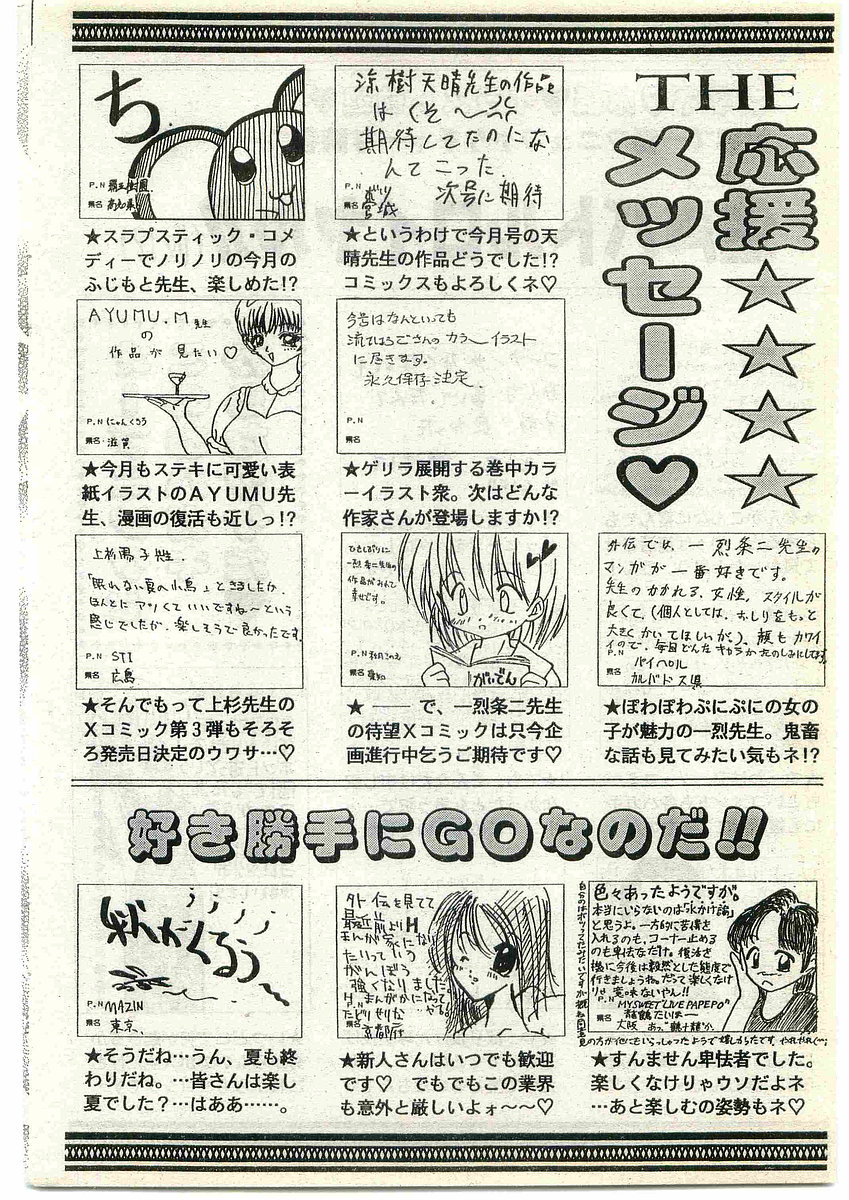 THE
応援★★★★
メッセージ♡
外伝では、一烈条二先生の
マンガが一番好きです。
先生のかかれる、女性、スタイルが
良くて、(個人としては、おしりをもっと
大きくかいてほしいが)、顔もカワイ
イので、毎回どんなキャラかたのしみにしてます
P.N パイヘロル
県名 カルバドス県
★ぽわぽわぷにぷにの女の
子が魅力の一烈先生。鬼畜
な話も見てみたい気もネ!?
涼樹天晴先生の作品
はくそ〜
期待してたのにな
んてこった
次号に期待
P.N
県名 宮城
★というわけで今月号の天
晴先生の作品どうでした!?
コミックスもよろしくネ♡
今号はなんといっても
流てはるごさんのカラーイラスト
に尽きます。
永久保存決定
P.N
県名
★ゲリラ展開する巻中カラ
ーイラスト衆。次はどんな
作家さんが登場しますか!?
ひさしぶりに
一烈条二先生の
作品がみれて
幸せです。
P.N
県名 愛知
がいでん
★――で、一烈条二先生
の待望Xコミックは只今企
画進行中乞うご期待です♡
ち
P.N
県名 高知県
★スラプスティック・コメ
ディーでノリノリの今月の
ふじもと先生、楽しめた!?
AYUMU.M先生
の
作品が見たい♡
P.N にゃんくろう
県名 滋賀
★今月もステキに可愛い表
紙イラストのAYUMU先
生、漫画の復活も近しっ!?
上杉陽子先生、
「眠れない夜の小鳥」ときましたか。
ほんとにアツくていいですね〜という
感じでしたが、楽しそうで良かったです
P.N STI
県名 広島
★そんでもって上杉先生の
Xコミック第3弾もそろそ
ろ発売日決定のウワサ…♡
好き勝手にGOなのだ!!
色々あったようですが。
本当にいらないのは「水かけ論」
と思うよ。一方的に苦情を
入れるのも、コーナー止める
のも卑怯なだけ。復活を
機に今後は毅然とした態度で
行きましょうね。だって楽しくなけ
りゃ、意味ないやん!!
P.N MY SWEET LIVE PAPEPO
県名 大阪
★すんません卑怯者でした。
楽しくなけりゃウソだよネ
…あと楽しむの姿勢もネ♡
外伝を見てて
最近前よりH
まんが家にな
たいっていう
がんぼう
強くなりました
H、まんがかになって
やる。
P.N
県名 京都府
★新人さんはいつでも歓迎
です♡　でもでもこの業界
も意外と厳しいよォ〜〜♡
秋がくるぅ〜
P.N MAZIN
県名 東京、
★そうだね…うん、夏も終
わりだね。…皆さんは楽し
夏でした?…はああ……。